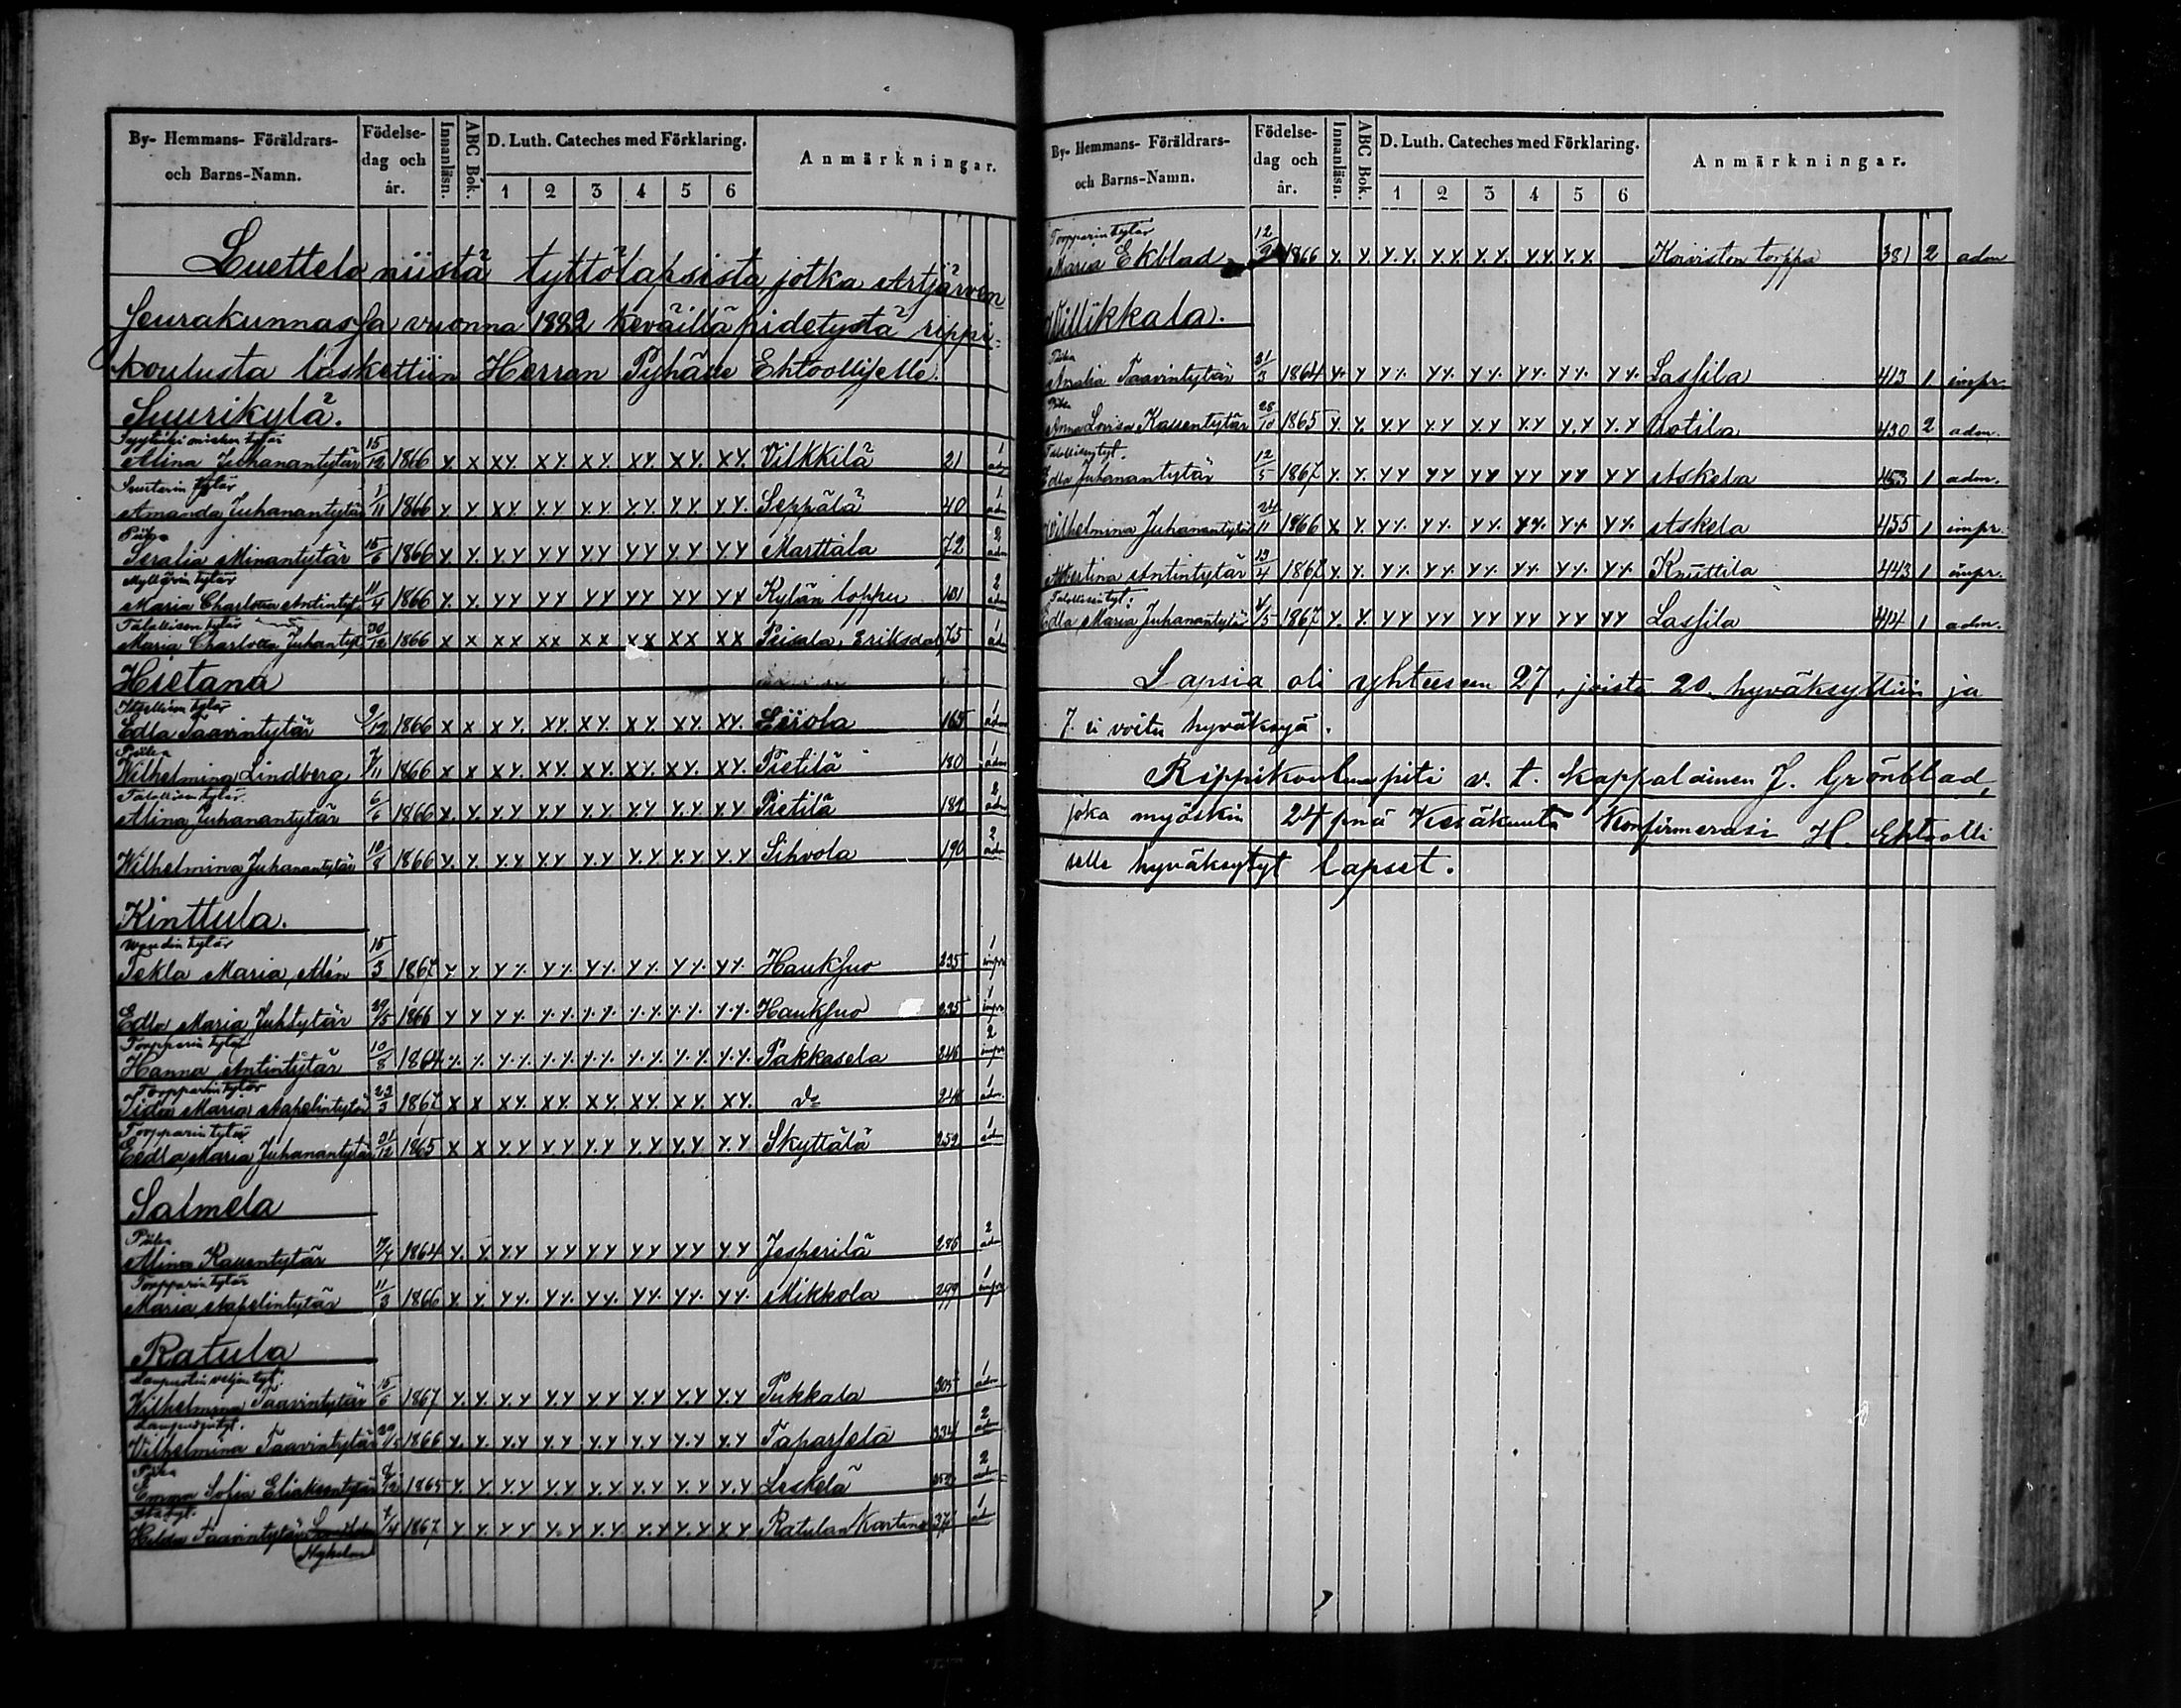 By- Hemmans- Föräldrars- och Barns-Namn. Födelse- dag och år. Innanläsn. ABC Bok. D. Luth. Cateches med Förklaring. 1 2 3 4 5 6 Anmärkningar.
Luettelo niistä tyttölapsista, jotka Artjärven
seurakunnassa vuonna 1882 keväillä pidetystä rippi=
koulusta laskettiin Herran Pyhälle Ehtoolliselle.
Suurikylä.
tytär
Alina Juhanantytär 15/12 1866 x. x xx. xx. xx. xx. xx. xx. Vilkkilä 21 1 adm
Suutarin tytär
Amanda Juhanantytär 1/11 1866 x. x xx. xx. xx. xx. xx. xx. Seppälä 40 1 adm
Piika
Seralia Miinantytär 15/6 1866 x. x. x.x x.x x.x x.x x.x x.x Marttala 72 2 adm
Myllärin tytär
Maria Charlotta Antintyt. 11/4 1866 x. x. xx xx xx xx xx xx Kylän loppu 101 2 adm
Talollisen tytär
Maria Charlotta Juhantyt. 30/12 1866 x x xx xx xx xx xx xx Peisala, Eriksdal 75 1 adm
Hietana
Itsellisen tytär
Edla Taavintytär 9/12 1866 x x xx. xx. xx. xx. xx. xx. Eerola 165 1 adm
Piika
Wilhelmina Lindberg 7/11 1866 x x xx. xx. xx. xx. xx. xx. Pietilä 180 1 adm
Talollisen tytär
Alina Juhanantytär 6/6 1866 x. x. x.x x.x x.x x.x x.x x.x Pietilä 182 2 adm
Wilhelmina Juhanantytär 10/8 1866 x. x. x.x x.x x.x x.x x.x x.x Sihvola 190 2 adm
Kinttula.
tytär
Tekla Maria Alén 15/3 1867 x. x. xx. xx. xx. xx. xx. xx. Hauksuo 235 1 impr
Edla Maria Juhtytär 29/5 1866 x x xx. x.x. x.x. x.x. x.x. x.x. Hauksuo 235 1 impr
Torpparin tytär
Hanna Antintytär 10/8 1864 x. x. x.x. x.x. x.x. x.x. x.x. x.x. Pakkasela 246 2 impr
Torpparin tytär
Iida Maria Aapelintytär 23/3 1867 x x xx. xx. xx. xx. xx. xx. do 246 1 adm
Torpparin tytär
Eedla Maria Juhanantytär 31/12 1865 x x x.x xx x.x x.x x.x x.x Skyttälä 252 1 adm
Salmela
Piika
Alina Kallentytär 1864 x. x. x.x xx xx x.x x.x x.x Jesperilä 286 2 adm
Torpparin tytär
Maria Aapelintytär 11/3 1866 x. x. xx. xx. xx. xx. xx. xx. Mikkola 299 1 impr
Ratula
veljen tyt.
Wilhelmina Taavintytär 15/6 1867 x. x. x.x x.x x.x x.x x.x x.x Pukkala 305 1 adm
Vilhelmina Taavintytär 1866 x. x. x.x x.x x.x x.x x.x x.x Taparsela 334 2 adm
Piika
Emma Sofia Eliaksentytär 1865 x. x. x.x x.x x.x x.x x.x x.x Leskelä 2 adm
Hilda Taavintytär 7/4 1867 x x x.x x.x x.x x.x x.x x.x Ratulan Kartano 1 ad
By- Hemmans- Föräldrars- och Barns-Namn. Födelse- dag och år. Innanläsn. ABC Bok. D. Luth. Cateches med Förklaring. 1 2 3 4 5 6 Anmärkningar.
Torpparin tytär
Maria Ekblad 12 1866 x. x x.x. x.x. x.x. x.x. x.x. Koiviston torppa 381 2 adm
Willikkala.
Piika
Amalia Taavintytär 31/3 1864 x. x xx. xx. xx. xx. xx. xx. Lassila 413 1 impr.
Piika
Anna Lovisa Kallentytär 28/10 1865 x. x. x.x x.x x.x x.x x.x x.x Uotila 430 2 adm.
Talollisen tyt.
Edla Juhanantytär 12/5 1867 x. x. xx xx xx xx xx xx Askela 453 1 adm.
Wilhelmina Juhanantytär 24/11 1866 x x. xx. xx. xx. xx. xx. xx. Askela 455 1 impr.
Albertina Antintytär 13/4 1867 x. x. xx. xx. xx. xx. xx. xx. Knuttila 443 1 impr.
Talollisen tyt:
Edla Maria Juhanantytär 1867 x. x. xx xx xx xx xx xx Lassila 414 1 adm.
Lapsia oli yhteesen 27, joista 20. hyväksyttiin ja
7. ei voitu hyväksyä.
Rippikoulua piti v. t. kappalainen J. Grönblad,
joka myöskin 24 pnä Kesäkuuta konfirmerasi H. Ehtoolli
selle hyväksytyt lapset.